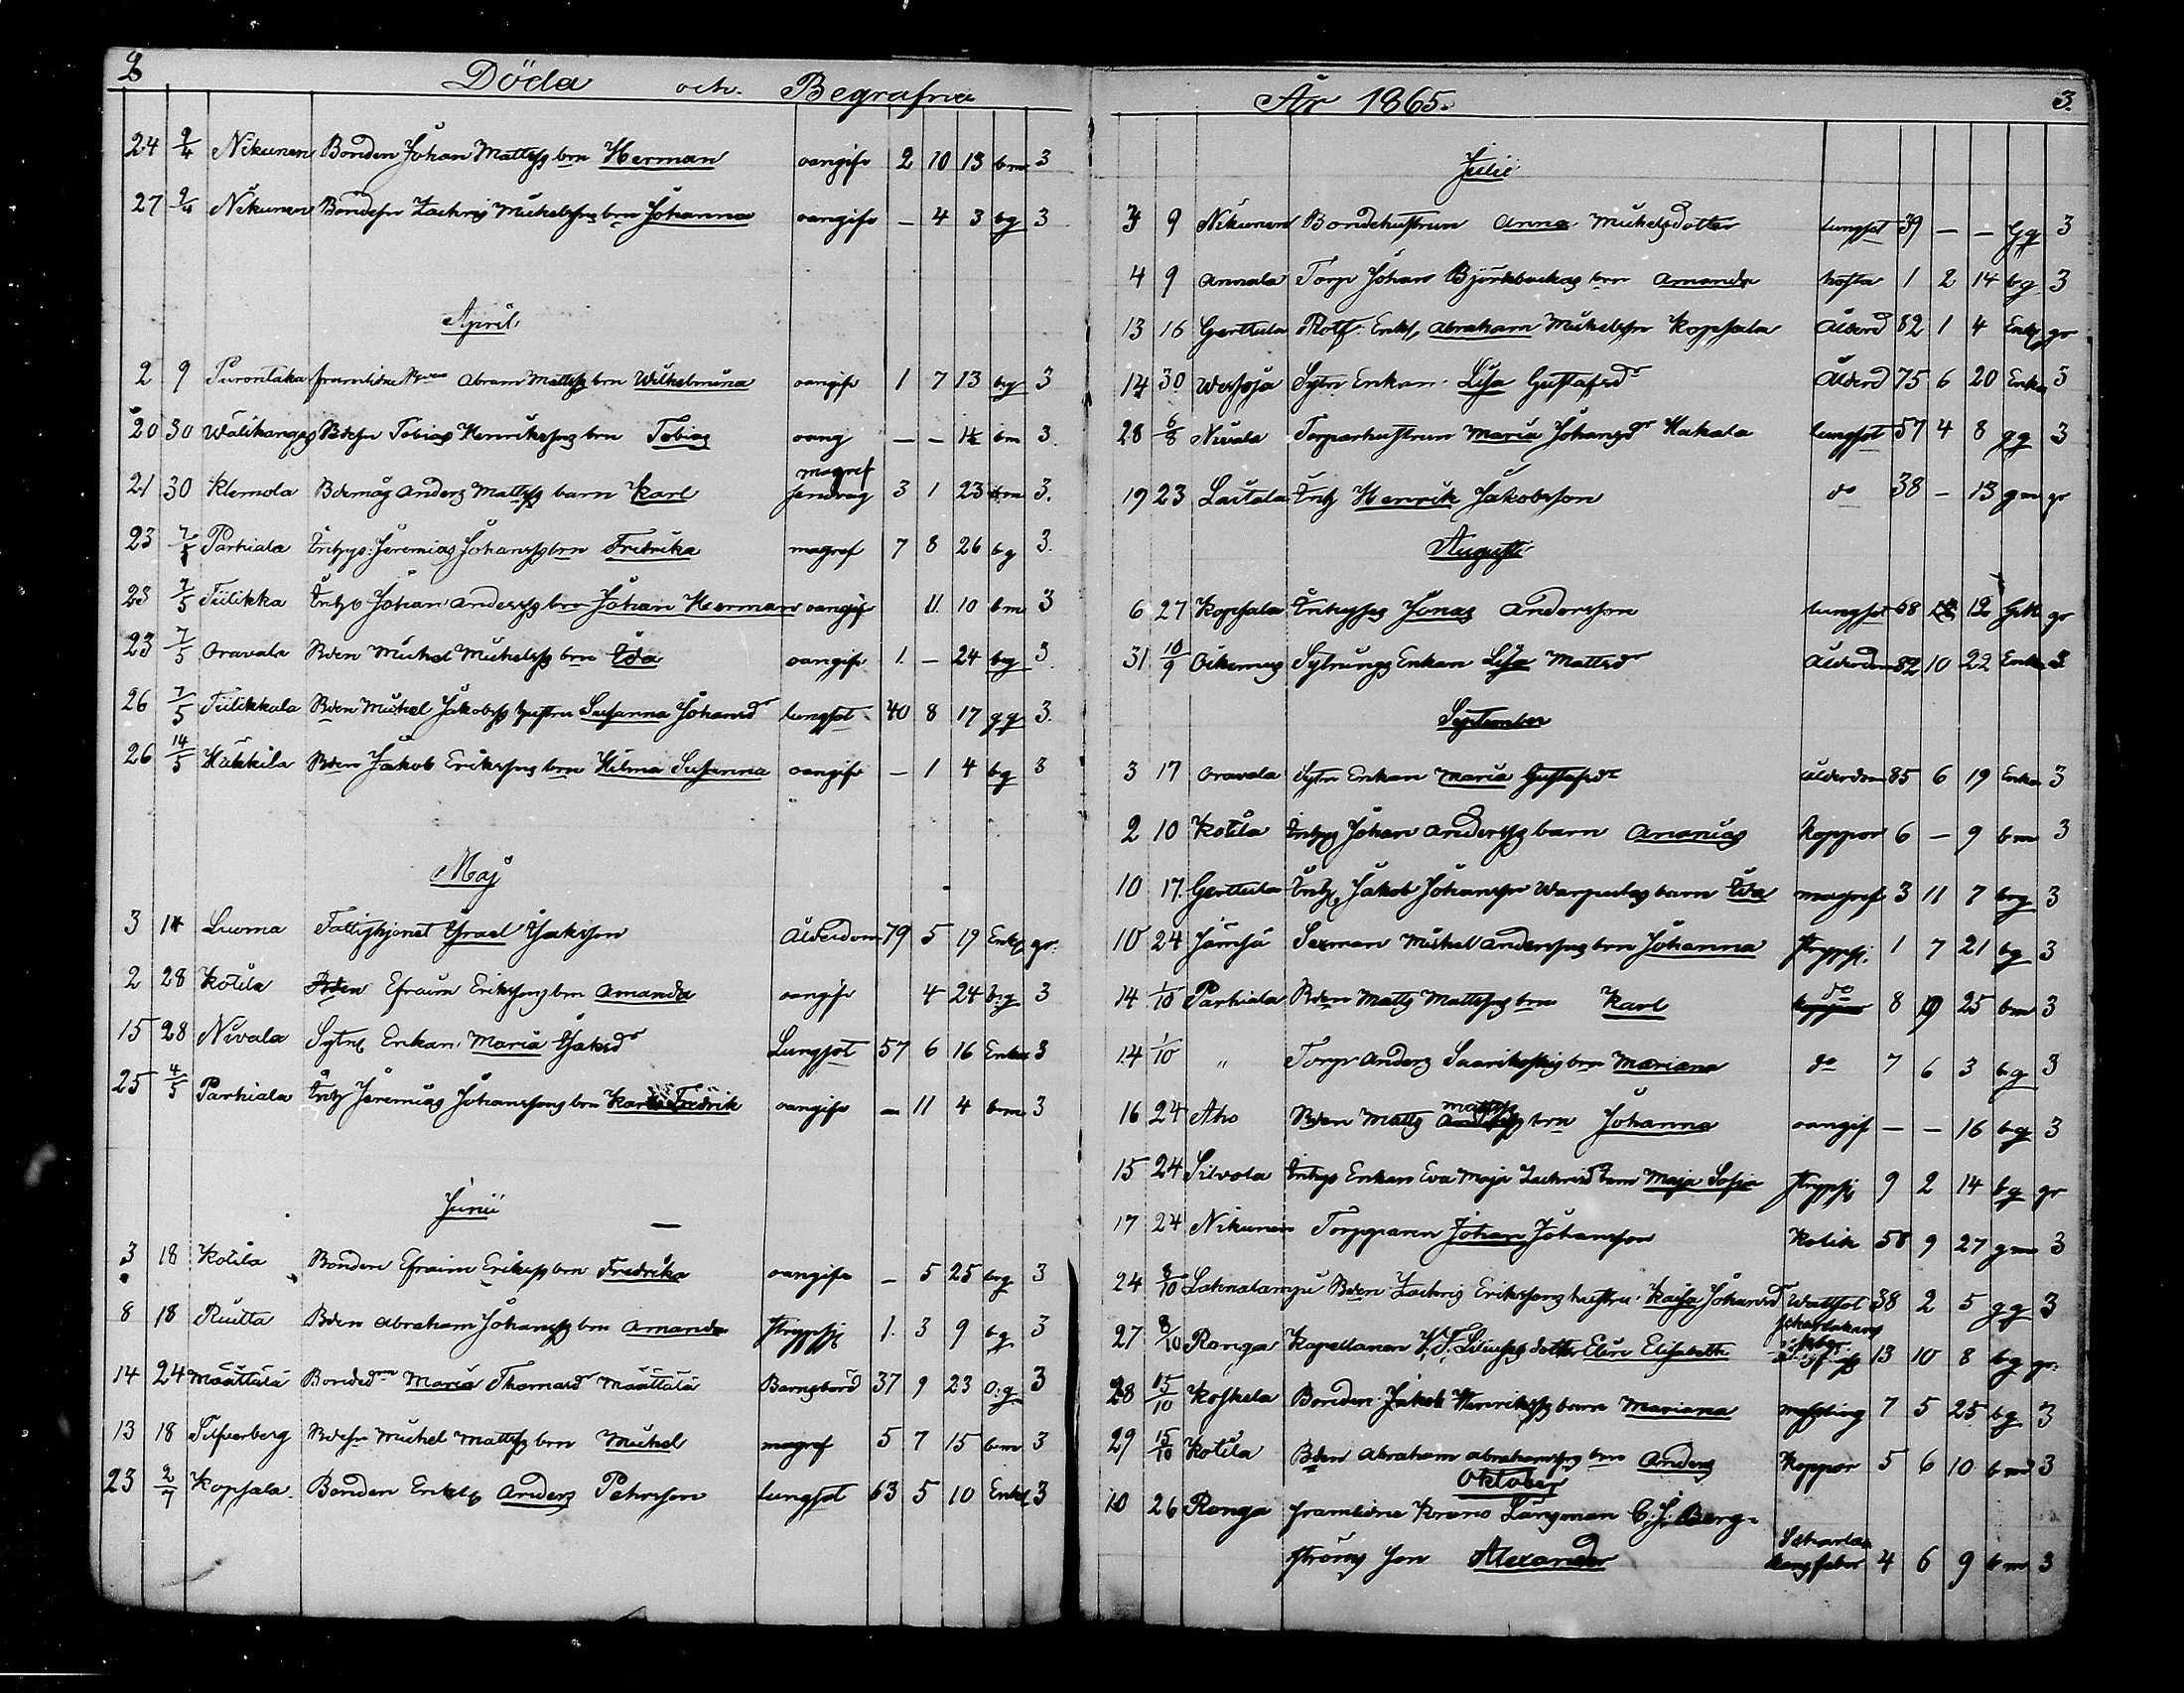 2 Döda och Begrafna
24 2/4 Nikunen Bonden Johan Mattss brn Herman oangifv 2 10 13 bm 3
27 9/4 Nikunen Bondesn Zachris Michelssns brn Johanna oangifv — 4 3 bg 3
April
2 9 Purontaka framlidne Abram Mattss brn Wilhelmina oangifv 1 7 13 bg 3
20 30 Wälikangas Bdesn Tobias Henrikssns brn Tobias oang — — 1½ bm 3.
21 30 Klemola Bdemåg Anders Mattss barn Karl magref 3 1 23 bm 3.
23 7/5 Parhiala Inhys: Jeremias Johanss brn Fredrika magref 7 8 26 bg 3.
23 7/5 Tiilikka Inhys Johan Anderss brn Johan Herman oangifv 11 10 bm 3
23 7/5 Oravala Bden Michel Michelss brn Eva oangifv 1. — 24 bg 3.
26 7/5 Tiilikkala Bden Michel Jakobss hustru Susanna Johansdr lungsot 40 8 17 gq 3.
26 14/5 Häkkilä Bden Jakob Erikssns brn Hilma Susanna oangifv — 1 4 bg 3
Maj
3 14 Luoma Fattighjonet Israel Isaksson Ålderdom 79 5 19 Enkl gr.
2 28 Kotila Bden Efraim Erikssns brn Amanda oangifv 4 24 bg 3
15 28 Nivala Sytn Enkan Maria Isaksdr Lungsot 57 6 16 Enka 3
25 4/5 Parhiala Inhy Jeremias Johanssons brn Karl Fredrik oangifv — 11 4 bm 3
Junii
3 18 Kotila Bonden Efraim Erikss brn Fredrika oangifv — 5 25 bg 3
8 18 Ruitta Bden Abraham Johanss brn Amanda strypsj 1. 3 9 bg 3
14 24 Määttälä Bondedrn Maria Thomasdr Määttälä Barnsbörd 37 9 23 o:g 3
13 18 Silfverberg Bdesn Michel Mattss brn Michel magref 5 7 15 bm 3
23 2/7 Kopsala Bonden Enkl Anders Pehrsson lungsot 63 5 10 Enkl 3
År 1865. 3.
Julii
3 9 Nikunen Bondehustrun Anna Michelsdotter lungsot 39 — — Gq 3
4 9 Annala Torp Johan Björkbackas brn Amanda hosta 1 2 14 bg 3
13 16 Gerttula Enkl, Abraham Michelssn Kopsala Ålderd 82 1 4 Enkl gr
14 30 Sytn Enkan Lisa Gustafsdr Ålderd 75 6 20 Enka 3
28 6/8 Nivala Torparhustrun Maria Johansdr Hakala lungsot 57 4 8 gq 3
19 23 Laitala Inhy Henrik Jakobsson do 38 — 13 gm gr
Augusti
6 27 Kopsala Inhyses Jonas Andersson lungsot 68 12 gr
31 10/9 Oikemus Sytnings Enkan Lisa Mattsdr Ålderdom 82 10 22 Enka 3
September
3 17 Oravala Sytn Enkan Maria Gustafsdr ålderdom 85 6 19 Enka 3
2 10 Kotila Inhys Johan Anderss barn Ananias koppor 6 — 9 bm 3
10 17. Gerttula Inhy, Jakob Johansson barn Eva magref 3 11 7 bg 3
10 24 Jämsä Sexman Michel Anderssns brn Johanna strypsj. 1 7 21 bg 3
14 1/10 Parhiala Bden Matts Mattssns brn Karl do 8 9 25 bm 3
14 1/10 " Torp Anders Saarikoskis brn Mariana do 7 6 3 bg 3
16 24 Aho Bden Matts Mattss brn Johanna oangif — — 16 bg 3
15 24 Silvola Inhys Enkan Eva Maja Zachrisdr barn Maja Sofia strypsj 9 2 14 bg gr
17 24 Nikunen Torpparen Johan Johansson Kolik 58 9 27 gm 3
24 8/10 Lahnalampi Bden Zachris Erikssons hustru Kaisa Johansdr Wattsot 38 2 5 gq 3
27 8/10 Ranga Kapellanen dotter Elise Elisabeth Scharlakans feber 13 10 8 bg gr.
28 15/10 Koskela Bonden Jakob Henrikss barn Mariana messling 7 5 25 bg 3
29 15/10 Kotila Bden Abraham Abrahamssns brn Anders Koppor 5 6 10 bm 3
Oktober
10 26 Ranga framlidne Krono Länsman C. J. Berg-
ströms son Alexander Scharlakansfeber 4 6 9 bm 3